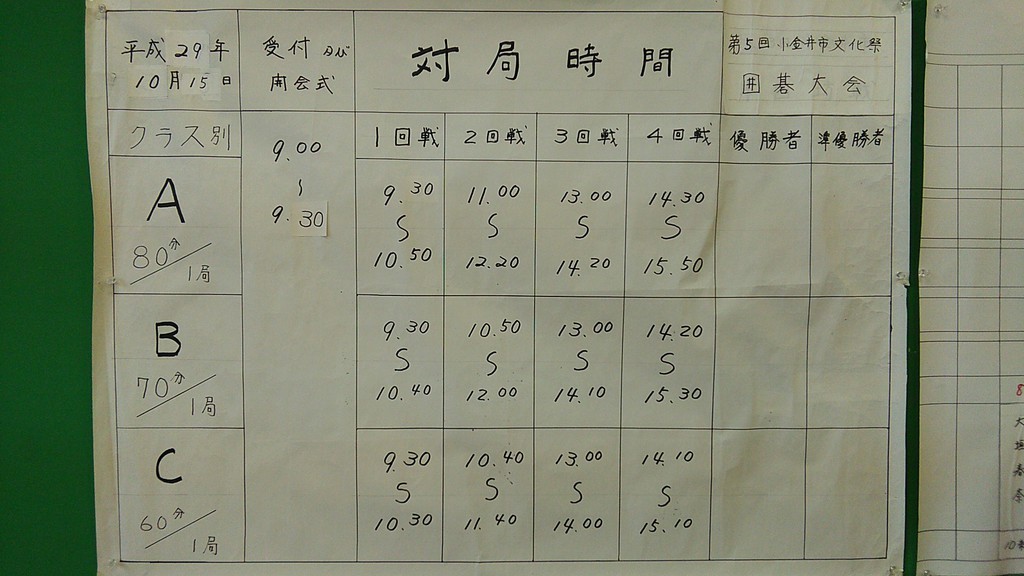 平成29年
10月15日
受付及び
開会式
対局時間
第5回小金井市文化祭
囲碁大会
クラス別
9.00
~
9.30
1回戦 2回戦 3回戦 4回戦 優勝者 準優勝者
A
80分/1局
9.30 11.00 13.00 14.30
S S S S
10.50 12.20 14.20 15.50
B
70分/1局
9.30 10.50 13.00 14.20
S S S S
10.40 12.00 14.10 15.30
C
60分/1局
9.30 10.40 13.00 14.10
S S S S
10.30 11.40 14.00 15.10
8